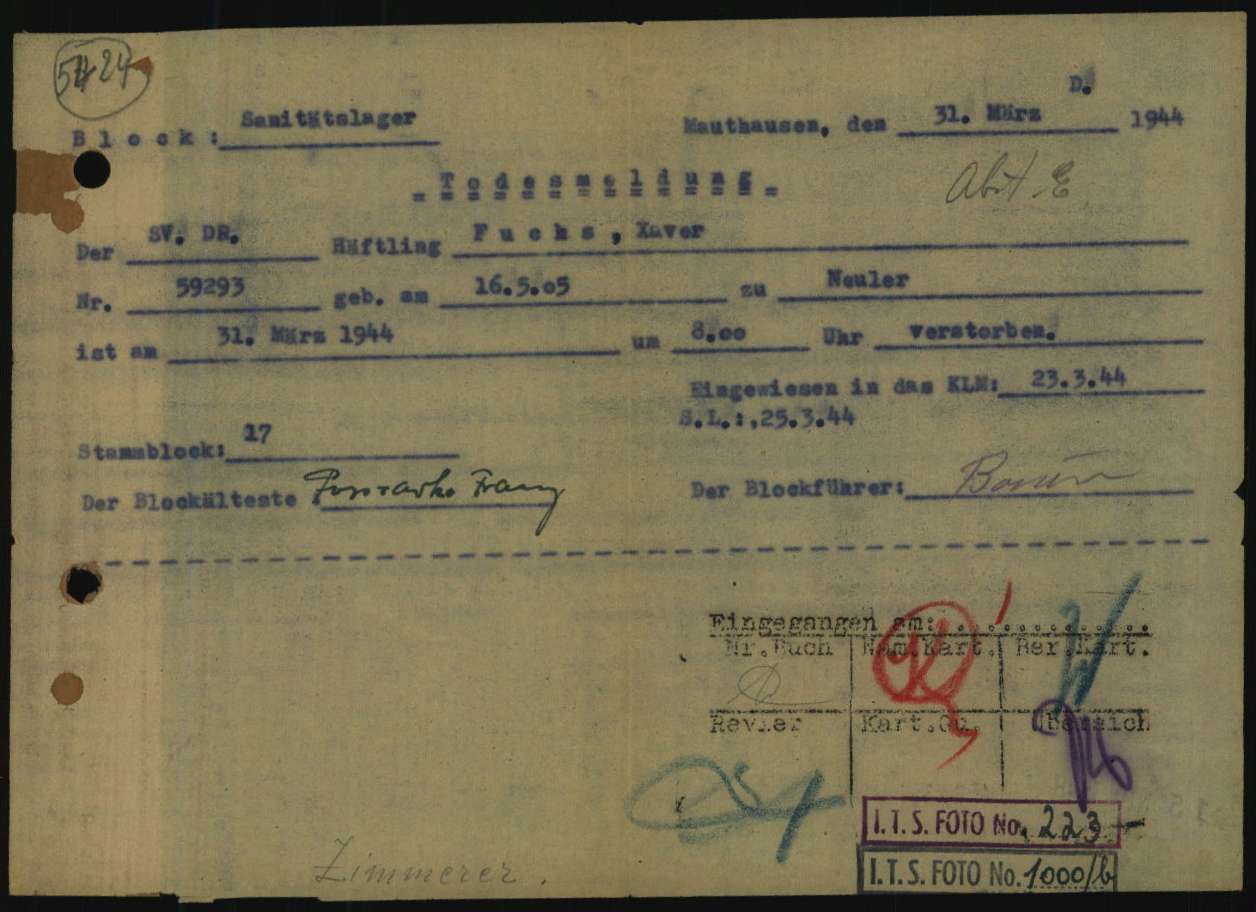 5424
D.
Block: Sanitätslager Mauthausen, den 31. März 1944
Abt. E
= T o d e s m e l d u n g =
Der SV. DR. Häftling F u c h s , Xaver
Nr. 59293 geb. am 16.5.o5 zu Neuler
ist am 31. März 1944 um 8.oo Uhr verstorben.
Eingewiesen in das KLM: 23.3.44
S.L.:,25.3.44
Stammblock: 17
Der Blockälteste Franz Der Blockführer:
Eingegangen am:
Nr.Buch Nam.Kart. Ber.Kart.
Revier Kart.Qu. Bersich
I.T.S. FOTO No. 223
Zimmerer.
I.T.S. FOTO No. 1000/b